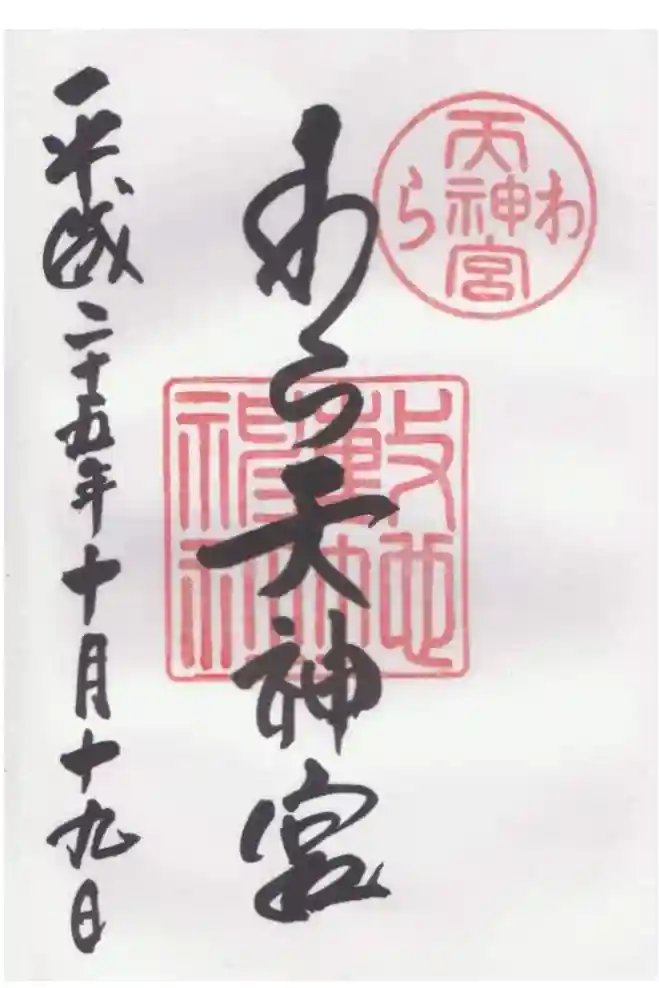 わら
天神宮
わら天神宮
敷地
神社
平成二十五年十月十九日